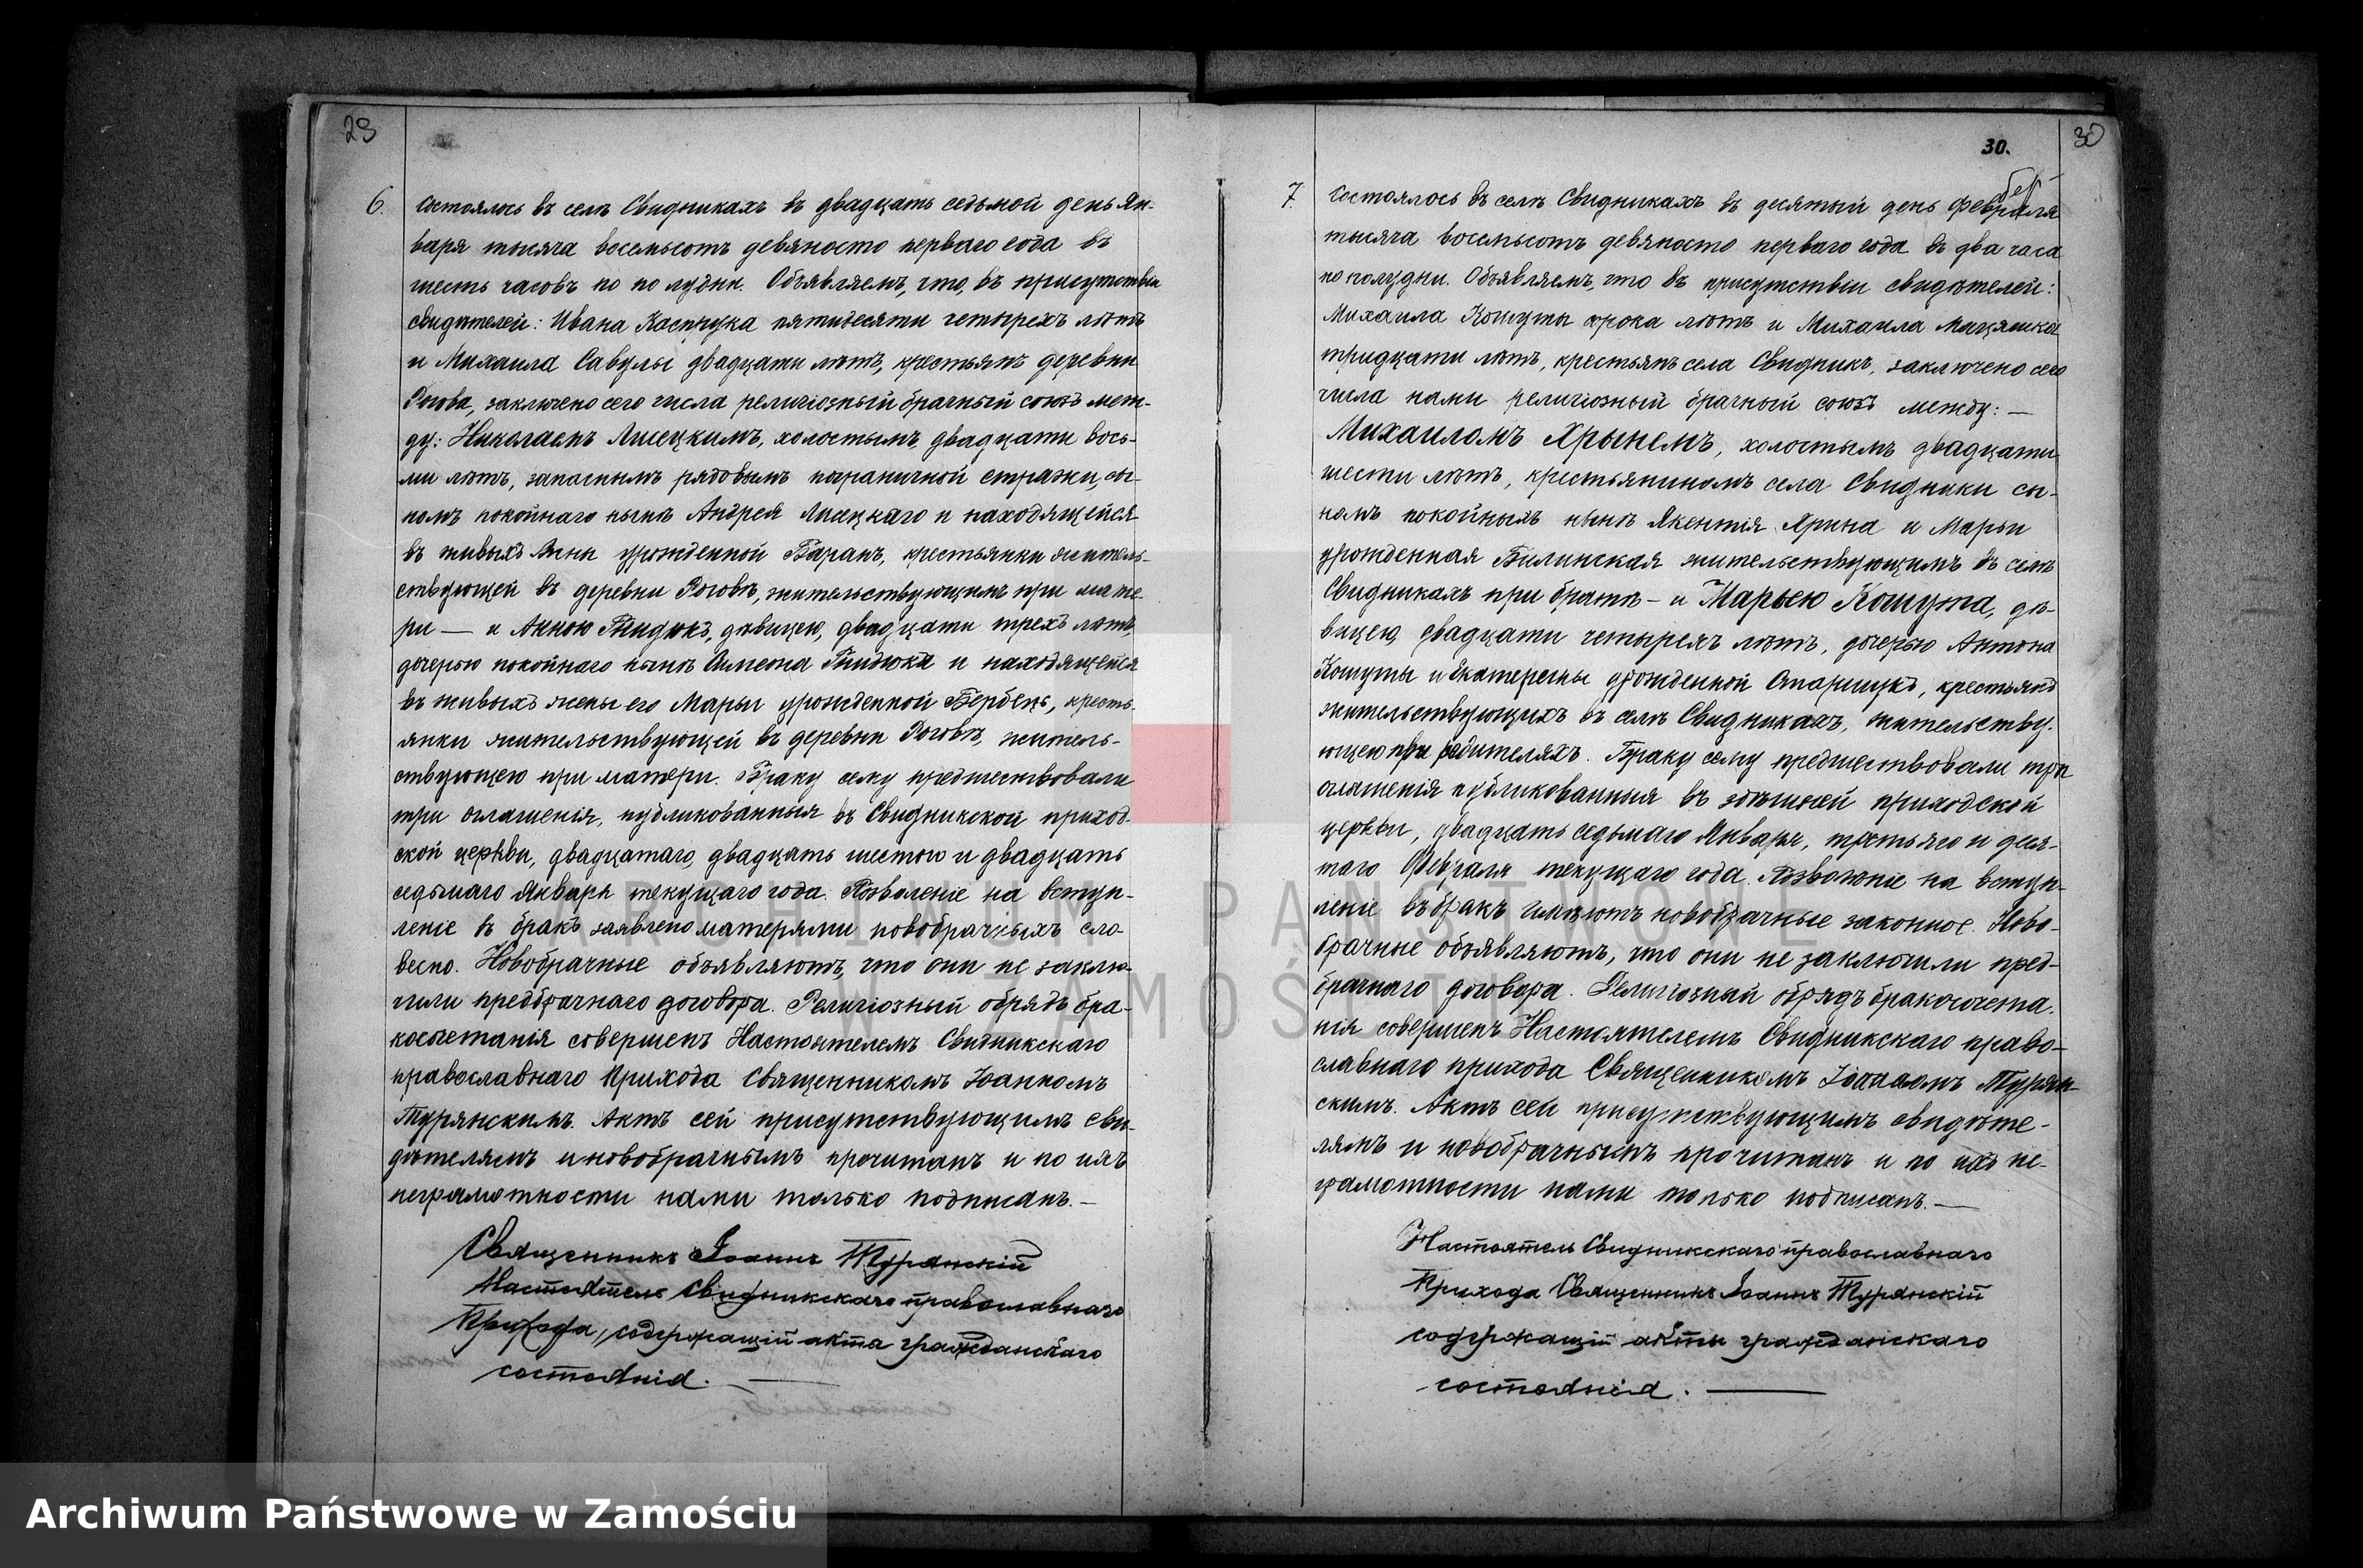 29
6. Состоялось въ селѣ Свидникахъ въ двадцать седьмой день Ян-
варя тысяча восемьсотъ девяносто перваго года въ
шесть часовъ по полудни. Объявляемъ, что, въ присутствіи
свидѣтелей: Ивана Каспрука пятидесяти четырехъ лѣтъ
и Михаила Савулы двадцати лѣтъ, крестьянъ деревни
Рогова, заключено сего числа религіозный брачный союзъ меж-
ду: Николаемъ Лисецкимъ, холостымъ, двадцати вось-
ми лѣтъ, запаснымъ рядовымъ пограничной стражи, сы-
номъ покойнаго нынѣ Андрея Лисецкаго и находящейся
въ живыхъ Анны урожденной Баранъ, крестьянки житель-
ствующей въ деревни Роговѣ, жительствующимъ при мате-
ри — и Анною Гнидюкъ, дѣвицею, двадцати трехъ лѣтъ,
дочерью покойнаго нынѣ Симеона Гнидюка и находящейся
въ живыхъ жены его Марьи урожденной Бербець, кресть-
янки жительствующей въ деревни Роговѣ, житель-
ствующею при матери. Браку сему предшествовали
три оглашенія, публикованныя въ Свидникской приход-
ской церкви, двадцатаго, двадцать шестого и двадцать
седьмаго Января текущаго года. Позволеніе на вступ-
леніе въ бракъ заявлено матерями новобрачныхъ сло-
весно. Новобрачные объявляютъ, что они не заклю-
чили предбрачнаго договора. Религіозный обрядъ бра-
косочетанія совершенъ Настоятелемъ Свидникскаго
православнаго Прихода Священникомъ Іоанномъ
Турянскимъ. Актъ сей присутствующимъ сви-
дѣтелямъ и новобрачнымъ прочитанъ и по ихъ
неграмотности нами только подписанъ. —
Священникъ Іоаннъ Турянскій
Настоятель Свидникскаго православнаго
Прихода, содержащій акты гражданскаго
состоянія. —
30.
30
7. Состоялось въ селѣ Свидникахъ въ десятый день Февраля
тысяча восемьсотъ девяносто перваго года въ два часа
по полудни. Объявляемъ, что въ присутствіи свидѣтелей:
Михаила Кошуты сорока лѣтъ и Михаила Мацяшка
тридцати лѣтъ, крестьянъ села Свидникъ, заключено сего
числа нами религіозный брачный союзъ между: —
Михаиломъ Хрынемъ, холостымъ двадцати
шести лѣтъ, крестьяниномъ села Свидники сы-
номъ покойныхъ нынѣ Хрина и Марьи
урожденная Билинская жительствующимъ въ селѣ
Свидникахъ при братѣ — и Марьею Кошута, дѣ-
вицею, двадцати четырехъ лѣтъ, дочерью Антона
Кошуты и Екатерины урожденной крестьянъ
жительствующихъ въ селѣ Свидникахъ, жительству-
ющею при родителяхъ. Браку сему предшествовали три
оглашенія публикованныя въ здѣшней приходской
церкви, двадцать седьмаго Января, третьяго и деся-
таго Февраля текущаго года. Позволеніе на вступ-
леніе въ бракъ имѣютъ новобрачные законное. Ново-
брачные объявляютъ, что они не заключили пред-
брачнаго договора. Религіозный обрядъ бракосочета-
нія совершенъ Настоятелемъ Свидникскаго право-
славнаго прихода Священникомъ Іоанномъ Турян-
скимъ. Актъ сей присутствующимъ свидѣте-
лямъ и новобрачнымъ прочитанъ и по ихъ не-
грамотности нами только подписанъ. —
Настоятель Свидникскаго православнаго
Прихода Священникъ Іоаннъ Турянскій
содержащій акты гражданскаго
состоянія. —
ARCHIWUM PAŃSTWOWE
W ZAMOŚCIU
Archiwum Państwowe w Zamościu